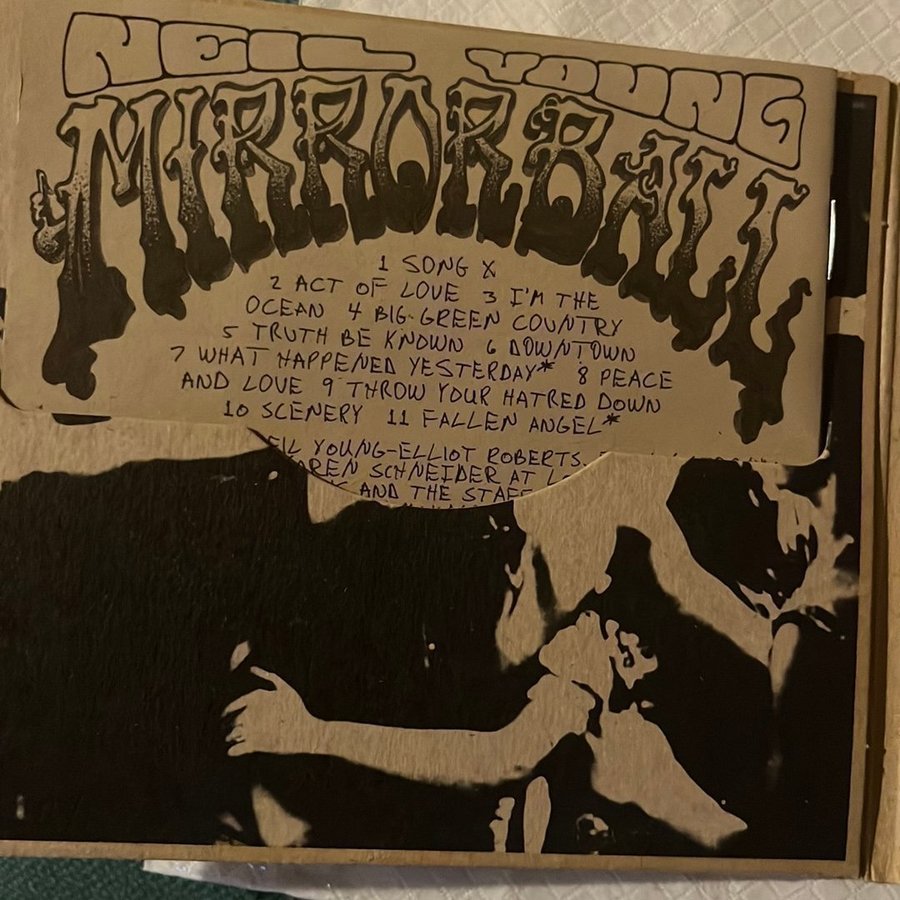 NEIL YOUNG
MIRRORBALL
1 SONG X
2 ACT OF LOVE 3 I'M THE
OCEAN 4 BIG GREEN COUNTRY
5 TRUTH BE KNOWN 6 DOWNTOWN
7 WHAT HAPPENED YESTERDAY* 8 PEACE
AND LOVE 9 THROW YOUR HATRED DOWN
10 SCENERY 11 FALLEN ANGEL*
EIL YOUNG-ELLIOT ROBERTS.
AREN SCHNEIDER AT
AND THE STAFF